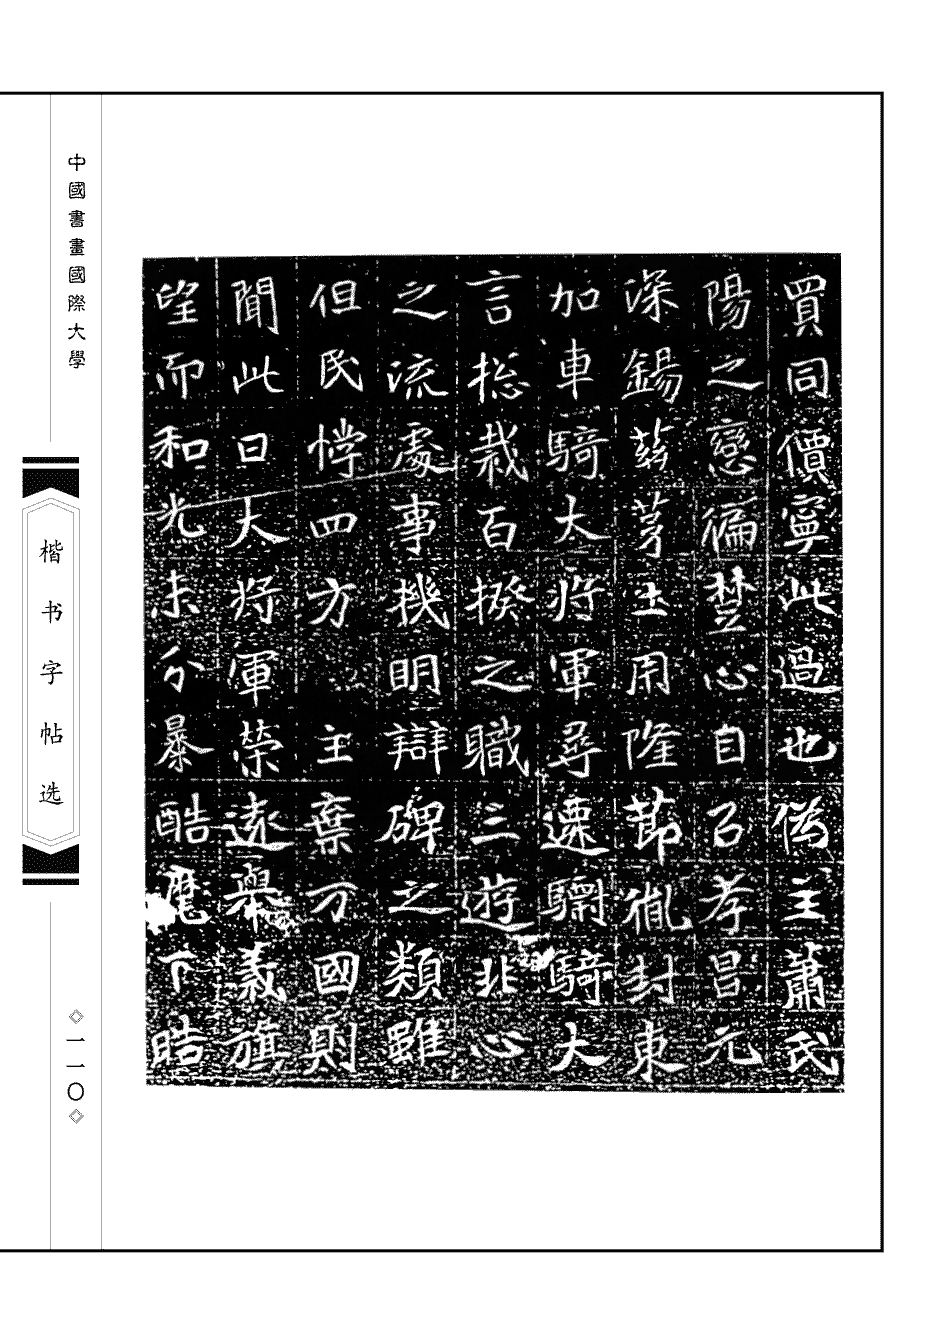 買同價寧此過也偽主蕭氏
陽之戀徧楚心自呂孝昌元
深錫茅土用隆節胤封東
加車騎大將軍尋遷驃騎大
言摠裁百揆之職三遊北心
之流處事機明辯碑之類雖
但民悖四方主棄万國則
聞此日大將軍榮遠舉義旗
望而和光未分暴酷麾下晧
中國書畫國際大學
楷书字帖选
一一〇